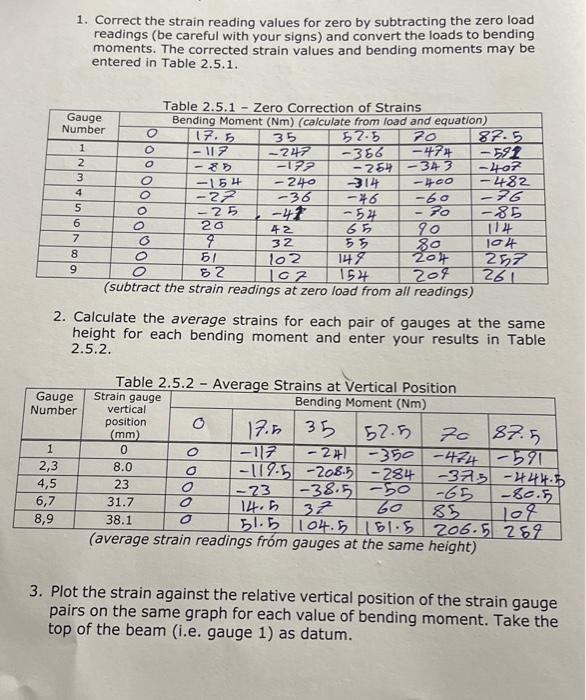 1. Correct the strain reading values for zero by subtracting the zero load
readings (be careful with your signs) and convert the loads to bending
moments. The corrected strain values and bending moments may be
entered in Table 2.5.1.
Table 2.5.1 - Zero Correction of Strains
Gauge Number Bending Moment (Nm) (calculate from load and equation)
0 17.5 35 52.5 70 87.5
1 0 -117 -247 -356 -474 -591
2 0 -85 -177 -254 -343 -407
3 0 -154 -240 -314 -400 -482
4 0 -27 -36 -46 -60 -76
5 0 -25 -41 -54 -70 -85
6 0 20 42 65 90 114
7 0 9 32 55 80 104
8 0 51 102 149 204 257
9 0 52 107 154 209 261
(subtract the strain readings at zero load from all readings)
2. Calculate the average strains for each pair of gauges at the same
height for each bending moment and enter your results in Table
2.5.2.
Table 2.5.2 - Average Strains at Vertical Position
Gauge Number Strain gauge vertical position (mm) Bending Moment (Nm)
0 17.5 35 52.5 70 87.5
1 0 0 -117 -241 -350 -474 -591
2,3 8.0 0 -119.5 -208.5 -284 -371.5 -444.5
4,5 23 0 -23 -38.5 -50 -65 -80.5
6,7 31.7 0 14.5 37 60 85 109
8,9 38.1 0 51.5 104.5 151.5 206.5 259
(average strain readings from gauges at the same height)
3. Plot the strain against the relative vertical position of the strain gauge
pairs on the same graph for each value of bending moment. Take the
top of the beam (i.e. gauge 1) as datum.